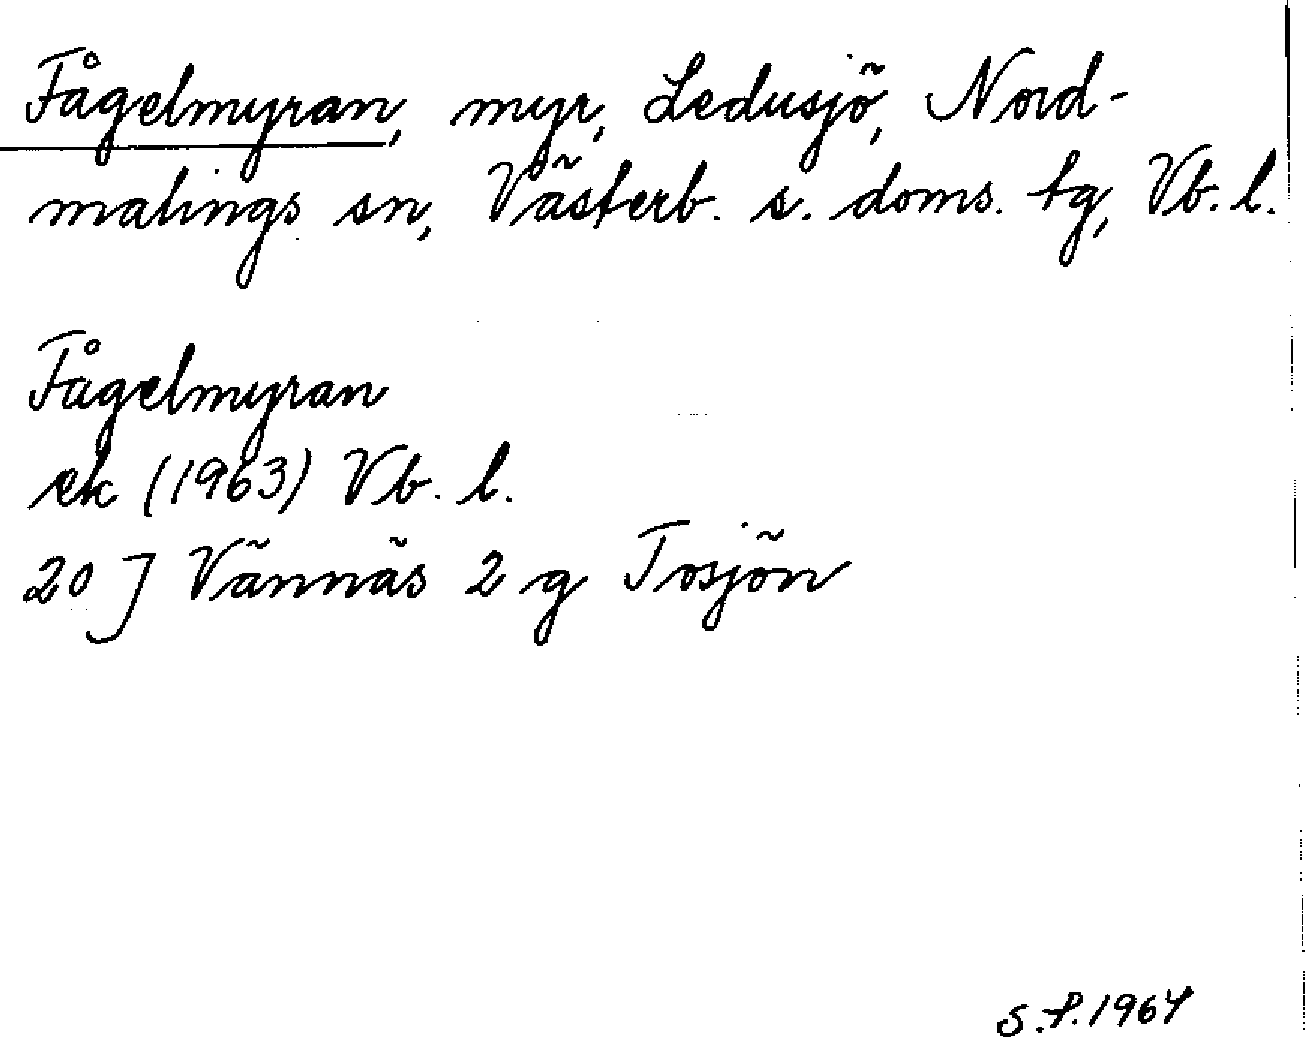 Fågelmyran, myr, Ledusjö, Nord-
malings sn, Västerb. s. doms. tg, Vb. l.
Fågelmyran
ek (1963) Vb. l.
20 J Vännäs 2 g Tosjön
S.P. 1964